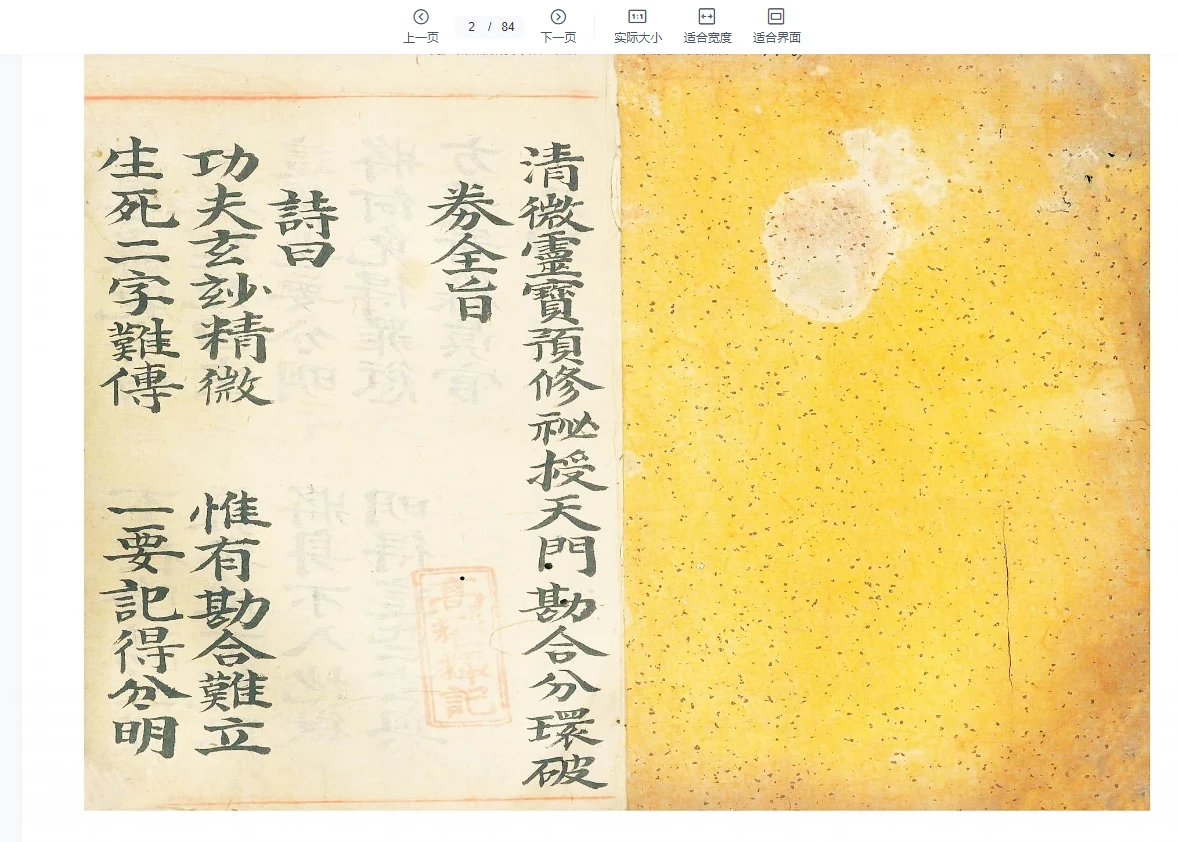 上一页
2 / 84
下一页
1:1
实际大小
适合宽度
适合界面
清微靈寶預修祕授天門勘合分環破
券全旨
詩曰
功夫玄玅精微 惟有勘合難立
生死二字難傳 一一要記得分明